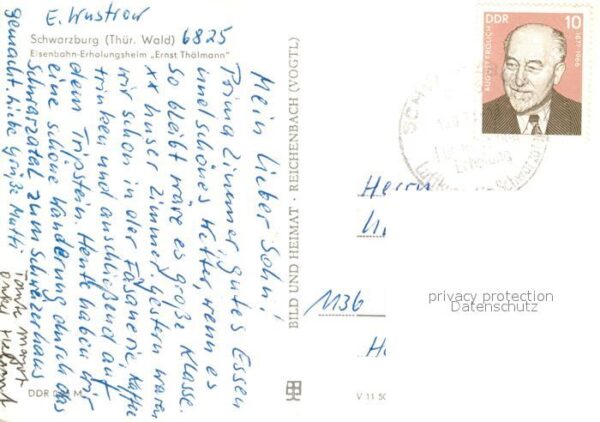 E. Wustrow
Schwarzburg (Thür. Wald) 6825
Eisenbahn-Erholungsheim „Ernst Thälmann"
Mein lieber Sohn!
Prima Zimmer, gutes Essen
und schönes Wetter, wenn es
so bleibt wäre es große Klasse.
xx unser Zimmer. Gestern waren
wir schon in der Fasanerie, Kaffee
trinken und anschließend auf
dem Trippstein. Heute haben wir
eine schöne Wanderung durch das
Schwarzatal zum Schweizerhaus
gemacht. Liebe Grüße Mutti
Tante Margt
Onkel Helmut
DDR M
BILD UND HEIMAT · REICHENBACH (VOGTL)
V 11 50
DDR 10
1877-1966
Erholung
Herrn
1136
privacy protection
Datenschutz